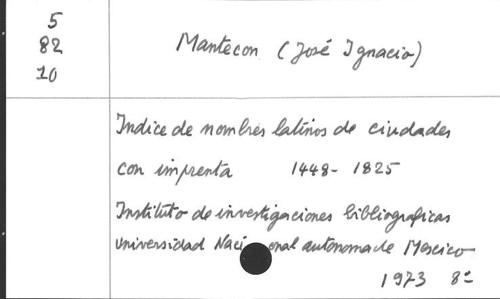 5
82
10
Mantecon (José Ignacio)
Indice de nombres latinos de ciudades
con imprenta 1448-1825
Instituto de investigaciones bibliograficas
Universidad Nacional autonoma de Mexico
1973 8º